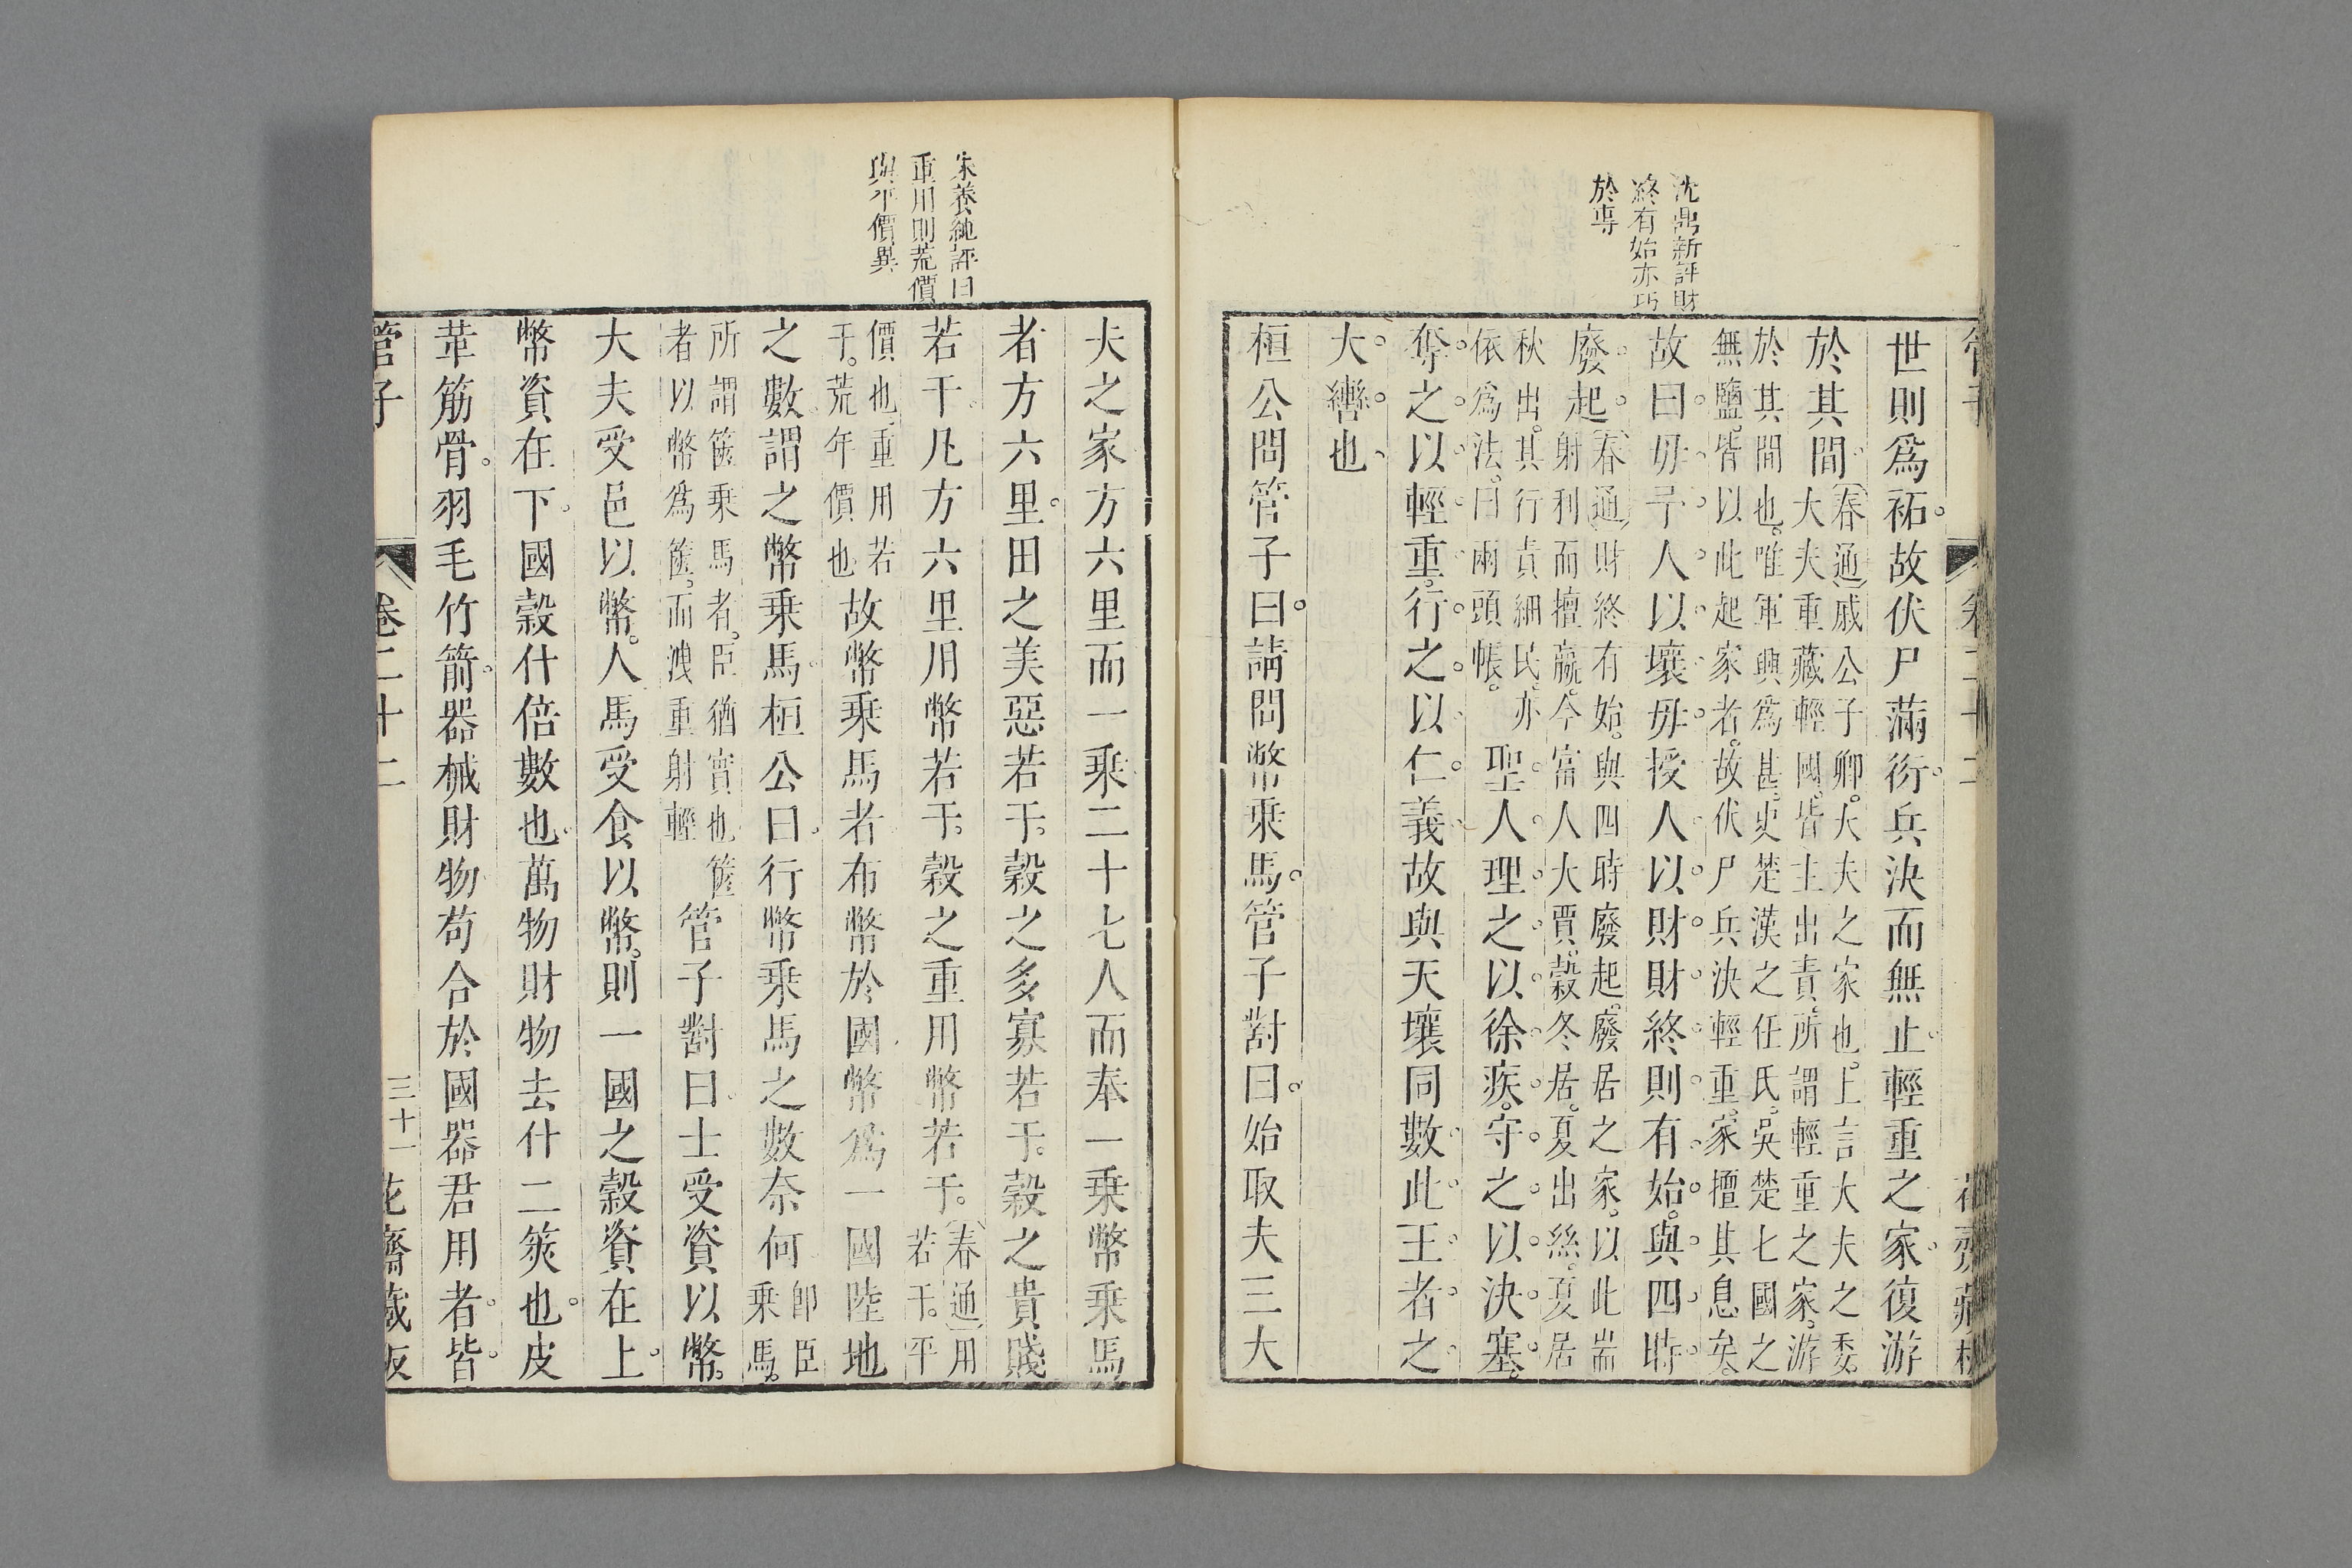 沈鼎新評財
終有始亦巧
於専
世則爲祏故伏尸滿衍兵決而無止輕重之家復游
於其間
春通戚公子卿大夫之家也上言大夫之委
大夫重藏輕國皆主出責所謂輕重之家游
於其間也唯軍興爲甚史楚漢之任氏吳楚七國之
無鹽皆以此起家者故伏尸兵決輕重家擅其息矣
故曰毋予人以壤毋授人以財財終則有始與四時
廢起
春通財終有始與四時廢起廢居之家以此耑
射利而擅贏今富人大賈穀冬居夏出絲夏居
秋出其行責細民亦
依爲法曰兩頭帳
聖人理之以徐疾守之以決塞
奪之以輕重行之以仁義故與天壤同數此王者之
大轡也
桓公問管子曰請問幣乘馬管子對曰始取夫三大
朱養純評曰
重用則荒價
與平價異
夫之家方六里而一乘二十七人而奉一乘幣乘馬
者方六里田之美惡若干穀之多寡若干穀之貴賤
若干凡方六里用幣若干穀之重用幣若干
春通用
若干平
價也重用若
干荒年價也
故幣乘馬者布幣於國幣爲一國陸地
之數謂之幣乘馬桓公曰行幣乘馬之數奈何
卽臣
乘馬
所謂篋乘馬者臣猶實也篋
者以幣爲篋而洩重射輕
管子對曰士受資以幣
大夫受邑以幣人馬受食以幣則一國之穀資在上
幣資在下國穀什倍數也萬物財物去什二筴也皮
革筋骨羽毛竹箭器械財物苟合於國器君用者皆
管子
卷二十二
三十一
花齋藏板